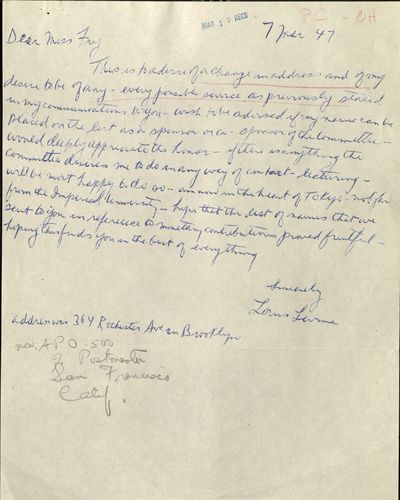 MAR 12 RECD
PC - OH
7 Mar 47
Dear Miss Fry
This is to advise of a change in address and of my
desire to be of any - every possible service as previously stated
in my communications to you - wish to be advised if my name can be
placed on the list as a sponsor or co-sponsor of the committee -
would deeply appreciate the honor - if there is anything the
committee desires me to do in any way of contact - lecturing -
will be most happy to do so - am now in the heart of Tokyo - not far
from the Imperial University - hope that the list of names that we
sent to you in reference to monetary contributions proved fruitful -
hoping this finds you in the best of everything
Sincerely
Louis Levine
address was 364 Rochester Ave in Brooklyn
now: A P O . 500
Postmaster
San Francisco
Calif.